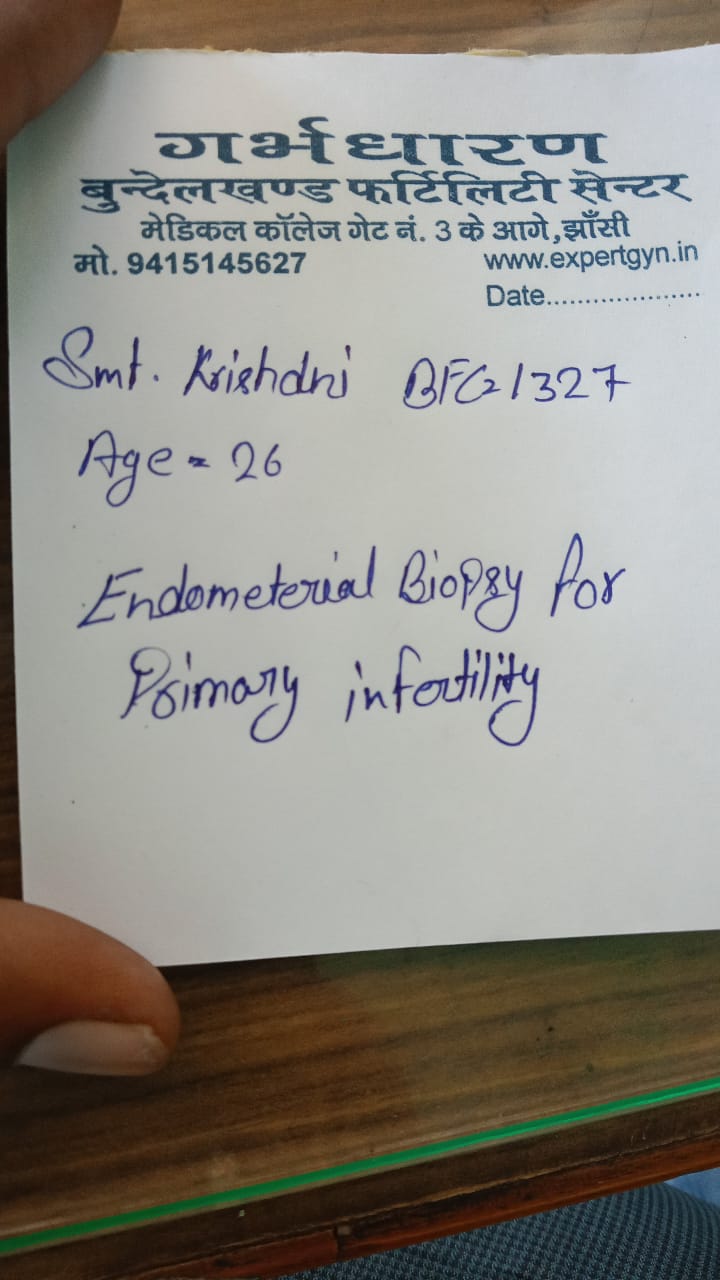 गर्भधारण
बुन्देलखण्ड फर्टिलिटी सेन्टर
मेडिकल कॉलेज गेट नं. 3 के आगे, झाँसी
मो. 9415145627 www.expertgyn.in
Date....................
Smt. BFC 1327
Age - 26
Endometerial Biopsy for
Primary infertility